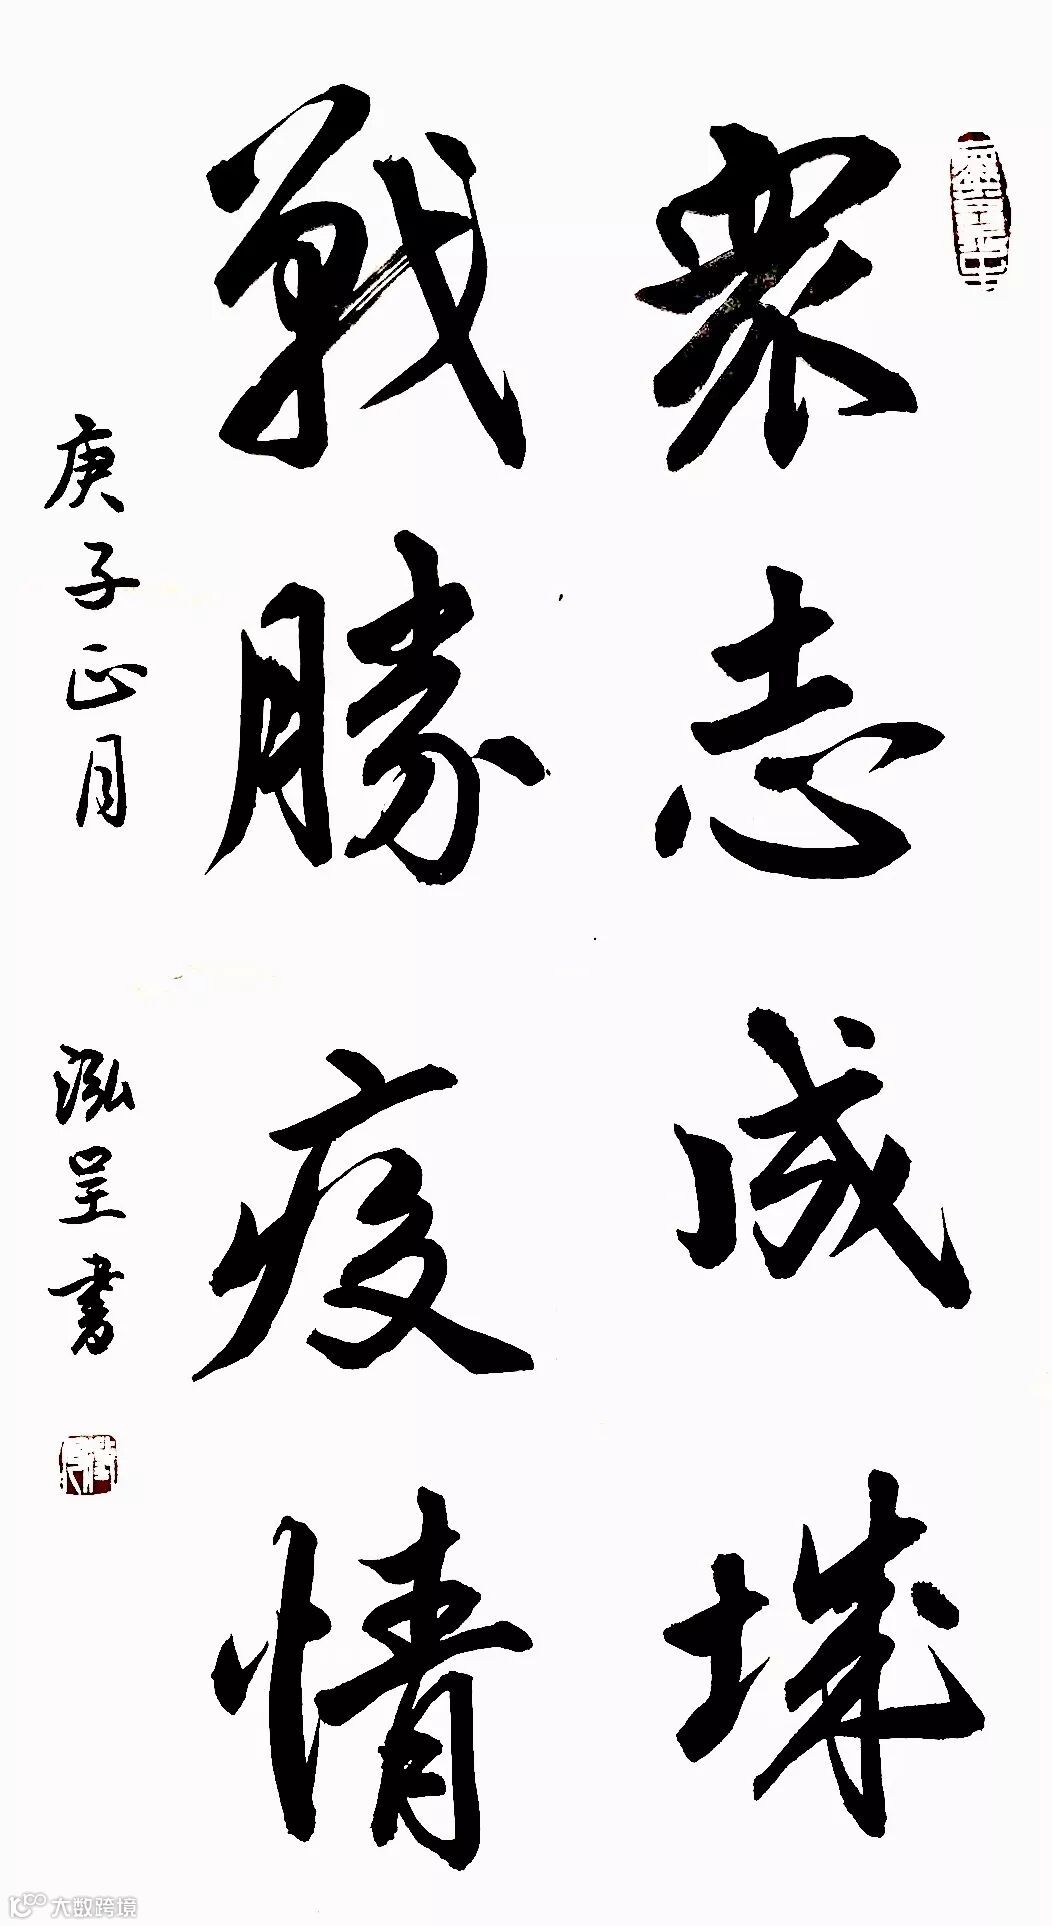 眾志成城
戰勝疫情
庚子正月 泓呈書
大数跨境